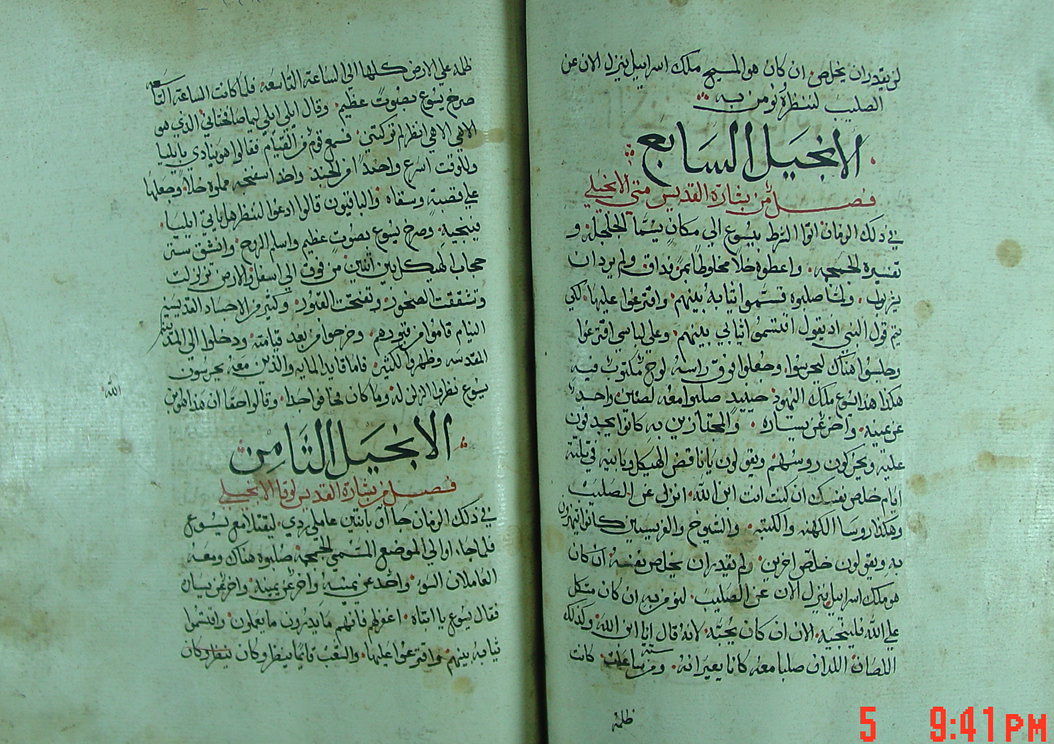 لن يقدر ان يخلص ان كان هو المسيح ملك اسراييل ينزل الان عن
الصليب لننظر ونومن به
الانجيل السابع
فصل من بشارة القديس متي الانجيلي
في ذلك الزمان اتوا الشرط بيسوع الى مكان يسما الجلجلة و
تفسيره الجمجمه واعطوه خلا مخلوطا بمر فذاق ولم يرد ان
يشربه ولما صلبوه قسموا ثيابه بينهم واقترعوا عليها لكي
يتم قول النبي اذ يقول اقتسموا ثيابي بينهم وعلى لباسي اقترعوا
وجلسوا هناك ليحرسوا وجعلوا فوق راسه لوح مكتوب فيه
هكذا هذا يسوع ملك اليهود حينيذ صلبوا معه لصين واحد
عن يمينه واخر عن يساره والمجتازين به كانوا يجدفون
عليه ويحركون روسهم ويقولون يا ناقض الهيكل وبانيه في ثلثة
ايام خلص نفسك ان كنت انت ابن الله انزل عن الصليب
وهكذا روسا الكهنه والكتبه والشيوخ والفريسيين كانوا يتهزون
به ويقولون خلص اخرين ولم يقدر ان يخلص نفسه ان كان
هو ملك اسراييل ينزل الان عن الصليب لنومن به ان كان متكل
على الله فلينجيه الان ان كان يحبه لانه قال انا ابن الله وكذلك
اللصان اللذان صلبا معه كانا يعيرانه ومن ستة ساعات كانت
ظلمة
ظلمه على الارض كلها الى الساعة التاسعه فلما كانت الساعة التاسعه
صرخ يسوع بصوت عظيم وقال ايلي ايلي لما صافختاني الذي هو
الاهي الاهي انظر لم تركتني فسمع قوم من القيام فقالوا هو ينادي بايليا
وللوقت اسرع واحدا من الجند واخذ اسفنجه ملوه خلا وجعلها
على قصبة وسقاه والباقيون قالوا ادعوا لننظر هل ياتي ايليا
فينجيه وصرخ يسوع بصوت عظيم واسلم الروح وانشق ستة
حجاب الهيكل باثنين من فوق الى اسفل والارض تزلزلت
وتشققت الصخور وتفتحت القبور وكثير من الاجساد القديسين
النيام قاموا من قبورهم وخرجوا من بعد قيامته ودخلوا الى المدينه
المقدسه وظهروا لكثير فاما قايد المايه والذين معه يحرسون
يسوع نظروا الزلزله وما كان بها فواحدا وقالوا حقا ان هذا هو ابن
الله
الانجيل الثامن
فصل من بشارة القديس لوقا الانجيلي
في ذلك الزمان جاوا باثنين عاملي ردي ليقتلا مع يسوع
فلما جاوا الى الموضع المسمي الجمجمه صلبوه هناك ومعه
العاملان السو واحد عن يمينه واخر عن يساره
فقال يسوع يا ابتاه اغفر لهم فانهم ما يدرون ما يفعلون واقتسموا
ثيابه بينهم واقترعوا عليها والشعب قايما ينظر وكان